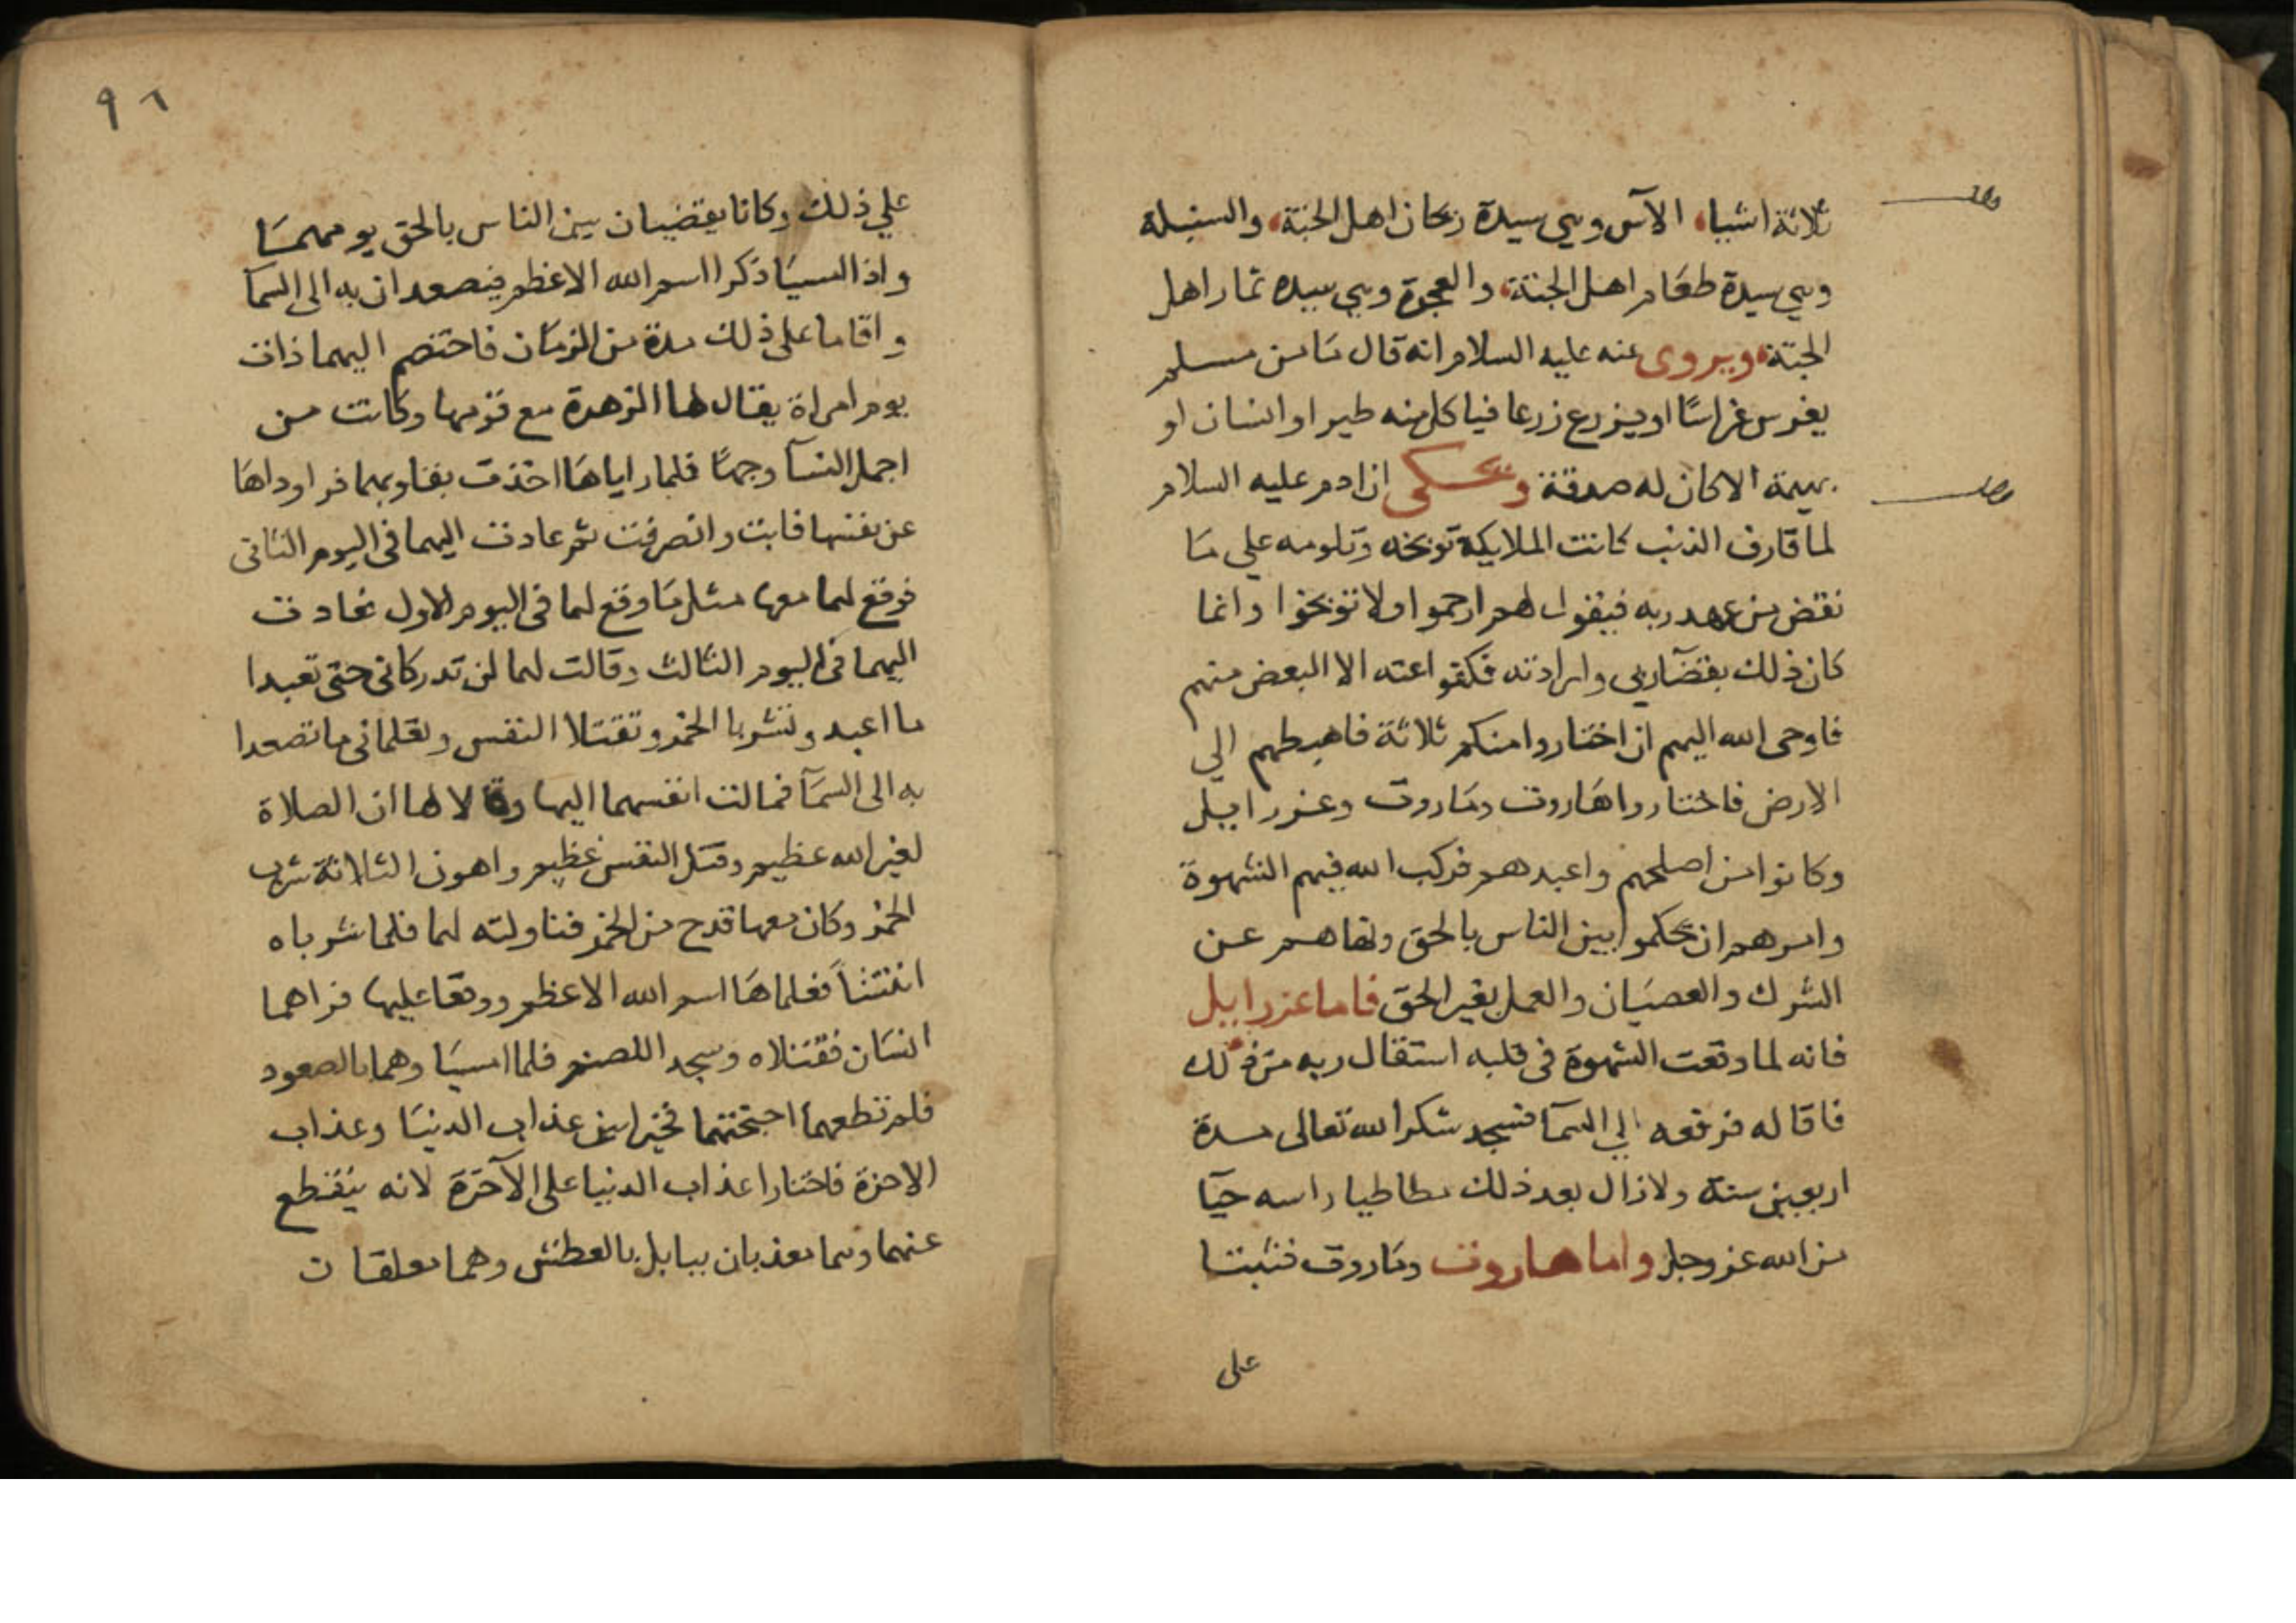 ثلاثة اشياء الآس وهي سيدة ريحان اهل الجنة والسنبلة
وهي سيدة طعام اهل الجنة والعجوة وهي سيدة ثمار اهل
الجنة ويروى عنه عليه السلام انه قال ما من مسلم
يغرس غراسًا او يزرع زرعا فياكل منه طير او انسان او
بهيمة الا كان له صدقة ويحكى ان ادم عليه السلام
لما قارف الذنب كانت الملايكة توبخه وتلومه علي ما
نقض من عهد ربه فيقول لهم ارحموا ولا توبخوا وانما
كان ذلك بقضآ ربي وارادته فكفوا عنه الا البعض منهم
فاوحى الله اليهم ان اختاروا منكم ثلاثة فاهبطهم الي
الارض فاختاروا هاروت وماروت وعزراييل
وكانوا من اصلحهم واعبدهم فركب الله فيهم الشهوة
وامرهم ان يحكموا بين الناس بالحق ونهاهم عن
الشرك والعصيان والعمل بغير الحق فاما عزراييل
فانه لما وقعت الشهوة في قلبه استقال ربه من ذلك
فاقاله فرفعه الي السمآ فسجد شكرا لله تعالى مدة
اربعين سنة ولا زال بعد ذلك مطاطيا راسه حيآ
من الله عز وجل واما هاروت وماروت فثبتا
على
٩٦
علي ذلك وكانا يقضيان بين الناس بالحق يومهما
واذا امسيا ذكرا اسم الله الاعظم فيصعدان به الى السمآ
واقاما على ذلك مدة من الزمان فاختصم اليهما ذات
يوم امراة يقال لها الزهرة مع قومها وكانت من
اجمل النسآ وجهًا فلما راياها اخذت بقلوبهما فراوداها
عن نفسها فابت وانصرفت ثم عادت اليهما في اليوم الثاني
فوقع لهما معها مثل ما وقع لهما في اليوم الاول فعادت
اليهما في اليوم الثالث وقالت لهما لن تدركاني حتى تعبدا
ما اعبد وتشربا الخمر وتقتلا النفس وتعلماني ما تصعدا
به الى السمآ فمالت انفسهما اليها وقالا لها ان الصلاة
لغير الله عظيم وقتل النفس عظيم واهون الثلاثة شرب
الخمر وكان معها قدح من الخمر فناولته لهما فلما شرباه
افتتنا فعلماها اسم الله الاعظم ووقعا عليها فراهما
انسان فقتلاه وسجدا للصنم فلما امسيا وهما بالصعود
فلم تطعهما اجنحتهما فخيرا بين عذاب الدنيا وعذاب
الاخرة فاختارا عذاب الدنيا على الآخرة لانه ينقطع
عنهما وهما يعذبان ببابل بالعطش وهما معلقان